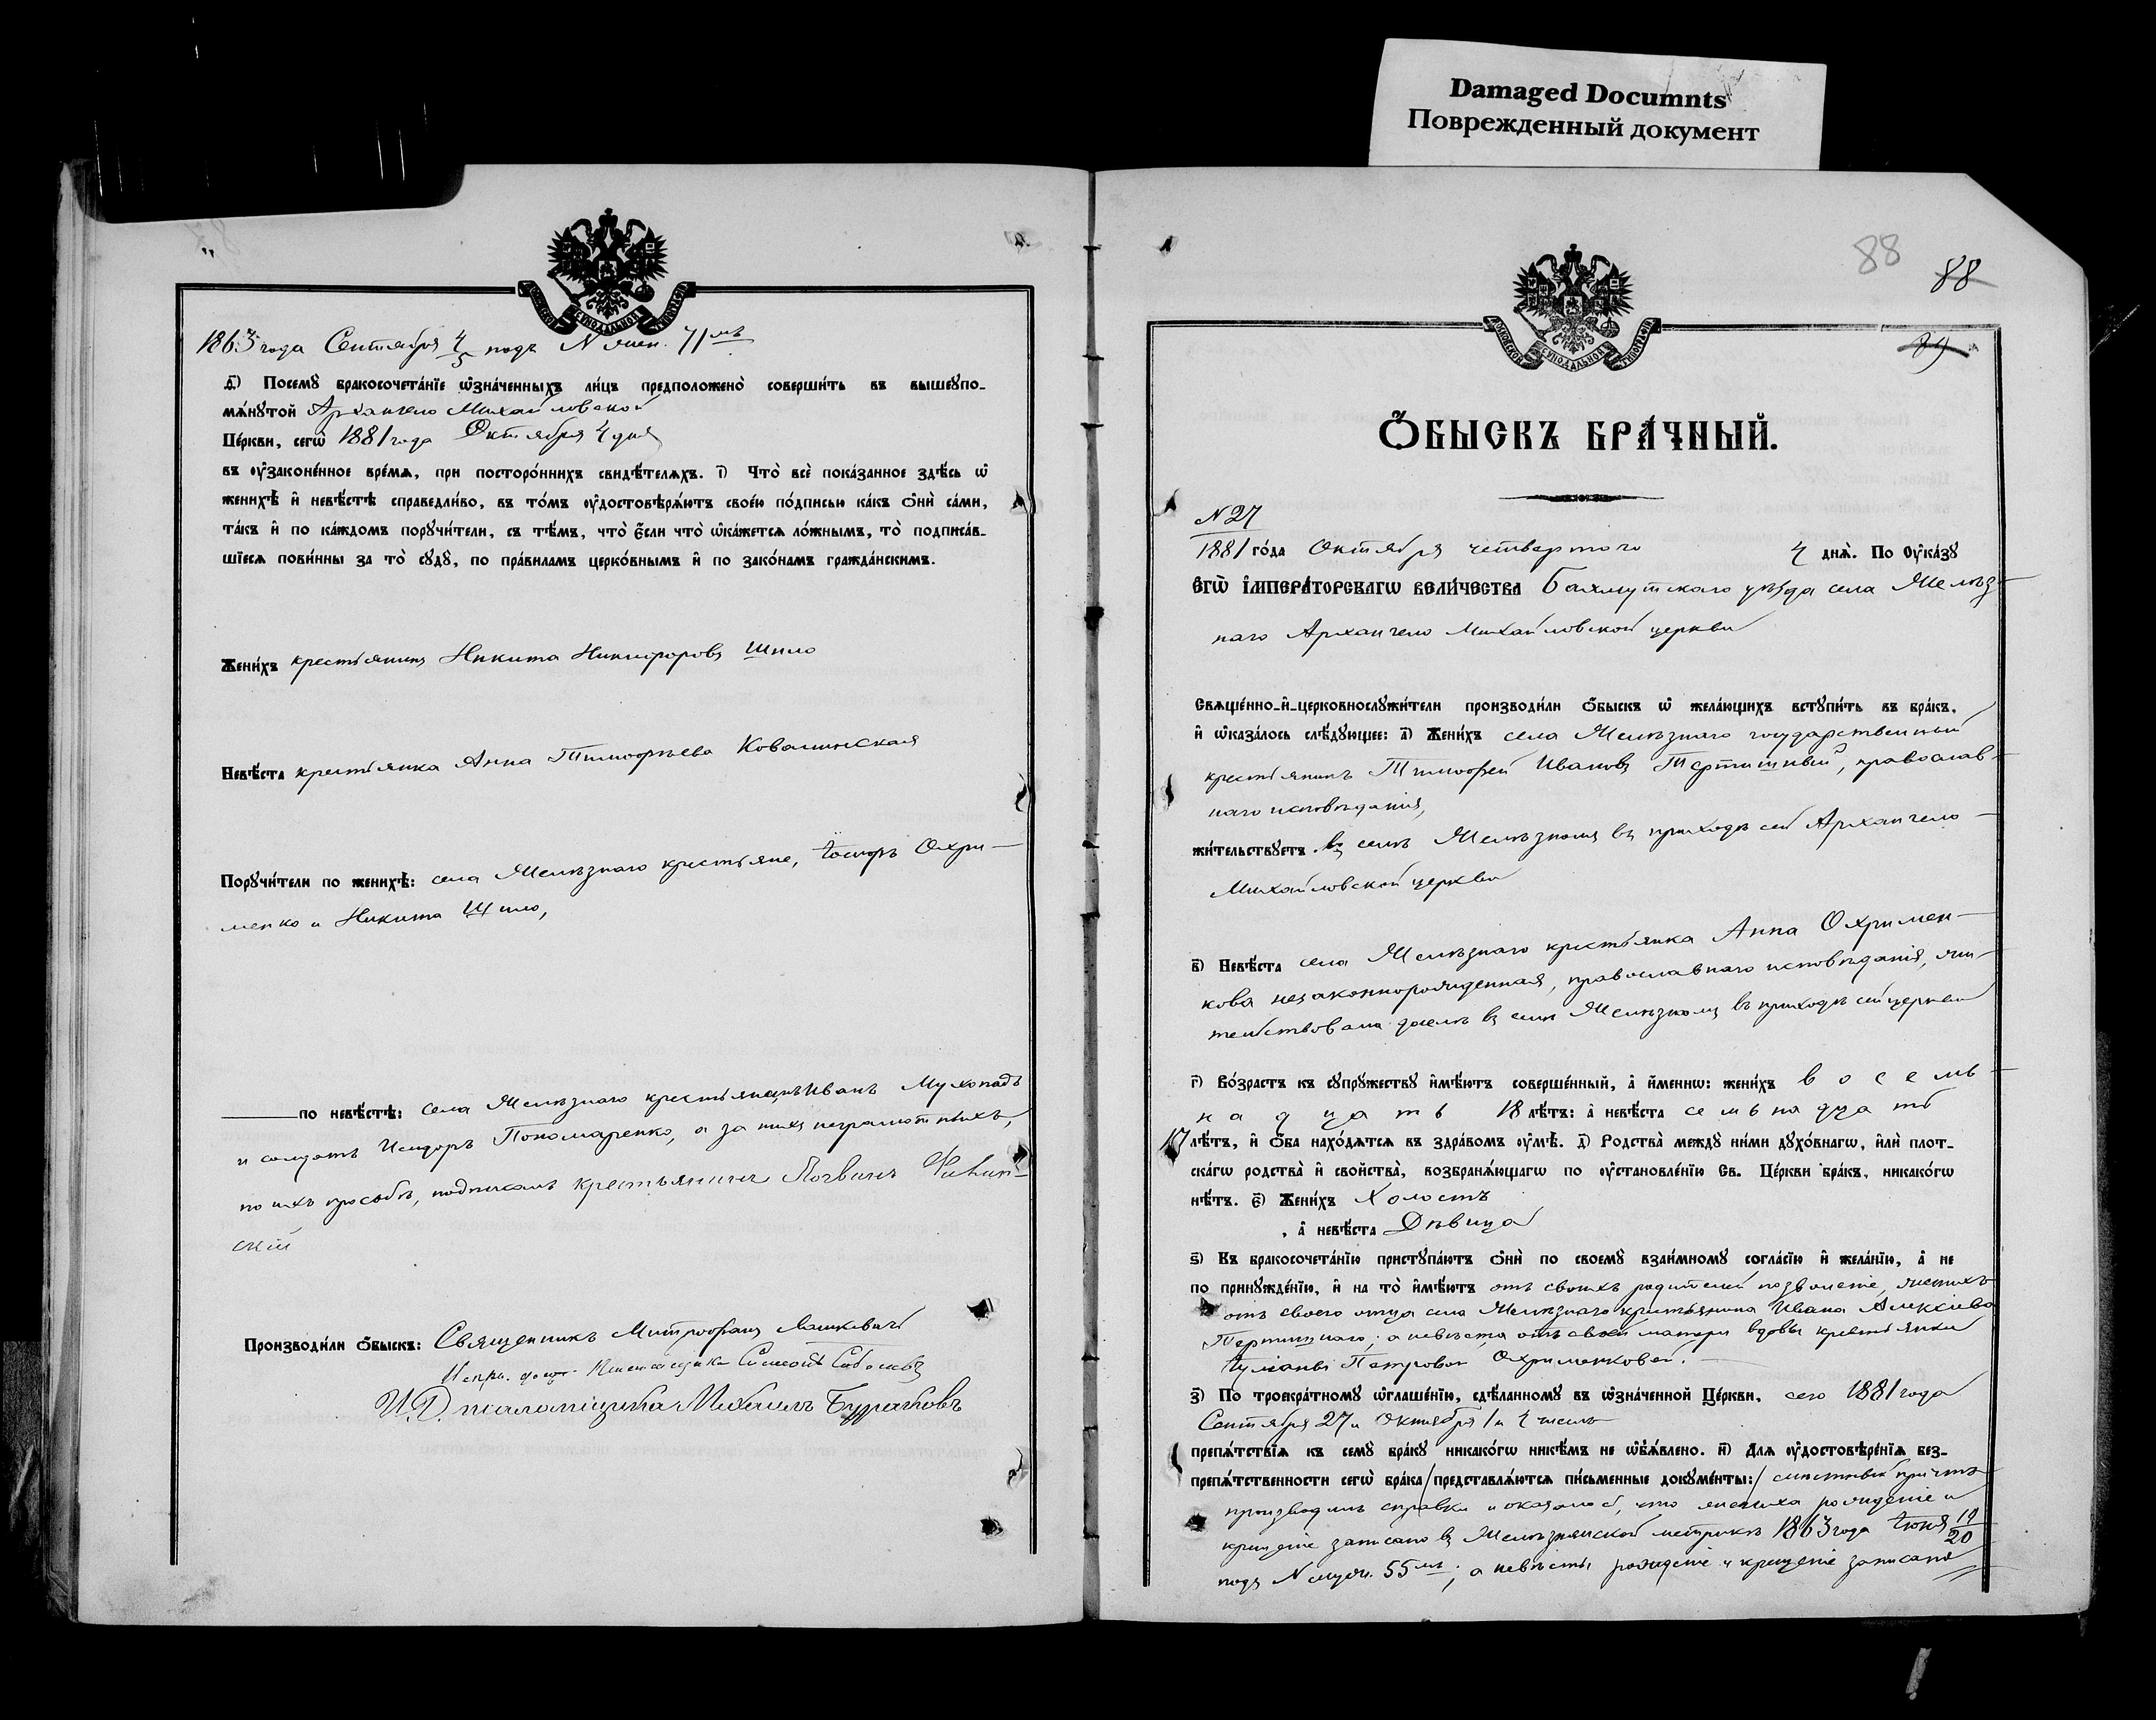 Damaged Documnts
Поврежденный документ
1863 года Сентября 4/5 подъ N жен. 71мъ
д҃) Посемꙋ̀ бракосочета́нїе ѡ҆зна́ченныхъ ли́цъ предположено̀ соверши́ть въ вышеꙋпо-
мѧ́нꙋтой Архангело Михайловской
Це́ркви, сегѡ̀ 1881 года Октября 4 дня
въ ᲂу҆законе́нное вре́мѧ, при посторо́ннихъ свидѣ́телѧхъ. і҃) Что̀ всѐ пока́занное здѣ́сь ѡ҆
женихѣ̀ и҆ невѣ́стѣ справедли́во, въ то́мъ ᲂу҆достовѣрѧ́ютъ свое́ю по́дписью ка́къ ѻ҆нѝ са́ми,
та́къ и҆ по ка́ждомъ порꙋчи́тели, съ тѣ́мъ, что̀ є҆́сли что̀ ѡ҆ка́жетсѧ ло́жнымъ, то̀ подписа́в-
шїесѧ пови́нны за то̀ сꙋдꙋ̀, по пра́виламъ церко́внымъ и҆ по зако́намъ гражда́нскимъ.
Жени́хъ крестьянинъ Никита Никифоровъ Шило
Невѣ́ста крестьянка Анна Тимофѣева Ковалинская
Порꙋчи́тели по женихѣ̀: села Желѣзнаго крестьяне, Іосифъ Охри-
менко и Никита Шило,
по невѣ́стѣ: села Желѣзнаго крестьянинъ Иванъ Мухопадъ
и солдатъ Исидоръ Пономаренко, а за нихъ неграмотныхъ,
по ихъ просьбѣ, подписалъ крестьянинъ Логвинъ
скій
Производи́ли ѻ҆́быскъ: Священникъ Митрофанъ Лашкевичъ
Испр. долж. Псаломщика
И. Д. псаломщика Михаилъ Бурачковъ
МОСКОВСКОЙ СѴНОДАЛЬНОЙ ТИПОГРАФІИ
88
88
89
Ѻ҆́БЫСКЪ БРА́ЧНЫЙ.
N 27
1881 го́да Октября четвертого 4 днѧ̀. По ᲂу҆ка́зꙋ
Є҆ГѠ̀ І҆МПЕРА́ТОРСКАГѠ ВЕЛИ́ЧЕСТВА Бахмутскаго уѣзда села Желѣз-
наго Архангело Михайловской церкви
Свѧще́нно-и҆-церковнослꙋжи́тели производи́ли ѻ҆́быскъ ѡ҆ жела́ющихъ встꙋпи́ть въ бра́къ,
и҆ ѡ҆каза́лось слѣ́дꙋющее: а҃) Жени́хъ села Желѣзнаго государственный
крестьянинъ Тимофей Ивановъ Тертишный, православ-
наго исповѣданія,
жи́тельствꙋетъ въ селѣ Желѣзномъ въ приходѣ сей Архангело-
Михайловской церкви
в҃) Невѣ́ста села Желѣзнаго крестьянка Анна Охримен-
кова незаконнорожденная, православнаго исповѣданія, жи-
тельствовала доселѣ въ селѣ Желѣзномъ въ приходѣ сей церкви
г҃) Во́зрастъ къ сꙋпрꙋ́жествꙋ и҆мѣ́ютъ соверше́нный, а҆ и҆́меннѡ: жени́хъ восемь-
надцать 18 лѣ́тъ: а҆ невѣ́ста семьнадцать
17 лѣ́тъ, и҆ ѻ҆́ба нахо́дѧтсѧ въ здра́вомъ ᲂу҆мѣ̀. д҃) Родства̀ междꙋ̀ ни́ми дꙋхо́внагѡ, и҆лѝ плот-
ска́гѡ родства̀ и҆ свойства̀, возбранѧ́ющагѡ по ᲂу҆становле́нїю Св. Це́ркви бра́къ, никако́гѡ
нѣ́тъ. є҃) Жени́хъ Холостъ
, а҆ невѣ́ста Дѣвица
ѕ҃) Къ бракосочета́нїю пристꙋпа́ютъ ѻ҆нѝ по своемꙋ̀ взаи́мномꙋ согла́сїю и҆ жела́нїю, а҆ не
по принꙋжде́нїю, и҆ на то̀ и҆мѣ́ютъ отъ своихъ родителей позволеніе, женихъ
отъ своего отца села Желѣзнаго крестьянина Ивана Алексіева
Тертишнаго; а невѣста отъ своей матери вдовы крестьянки
Іуліаніи Петровой Охрименковой.
з҃) По троекра́тномꙋ ѡ҆глаше́нїю, сдѣ́ланномꙋ въ ѡ҆зна́ченной Це́ркви, сего 1881 года
Сентября 27 и Октября 1 и 4 чиселъ
препѧ́тствїѧ къ семꙋ̀ бра́кꙋ никако́гѡ никѣ́мъ не ѡ҆б̾ѧ́влено. и҃) Длѧ ᲂу҆достовѣре́нїѧ без-
препѧ́тственности сегѡ̀ бра́ка / представлѧ́ются пи́сьменные докꙋме́нты: / причтъ
производилъ справки и оказалось, что жениха рожденіе и
крещеніе записано въ Желѣзнянской метрикѣ 1863 года Іюня 19/20
подъ N муж. 55мъ; а невѣсты рожденіе и крещеніе записано